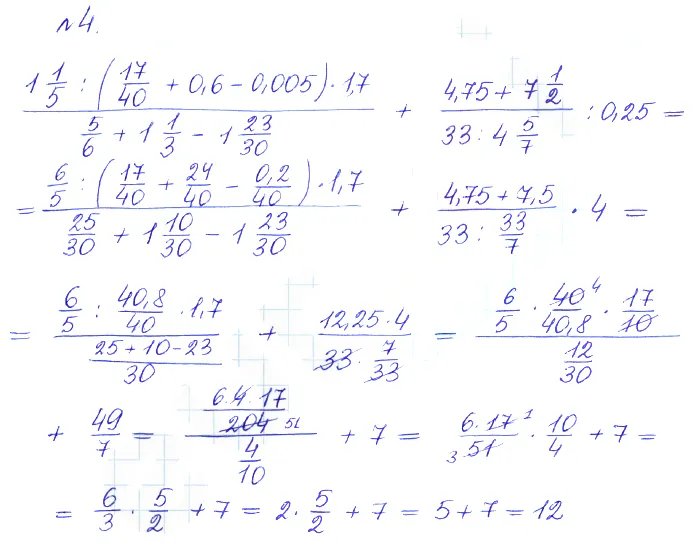 №4.
1 1/5 : (17/40 + 0,6 - 0,005) · 1,7 / (5/6 + 1 1/3 - 1 23/30) + (4,75 + 7 1/2) / (33 : 4 5/7) : 0,25 =
= 6/5 : (17/40 + 24/40 - 0,2/40) · 1,7 / (25/30 + 1 10/30 - 1 23/30) + (4,75 + 7,5) / (33 : 33/7) · 4 =
= 6/5 : 40,8/40 · 1,7 / ((25 + 10 - 23)/30) + 12,25 · 4 / (33 · 7/33) = 6/5 · 40 4/40,8 · 17/10 / (12/30)
+ 49/7 = (6 · 4 · 17 / 204 51) / (4/10) + 7 = 6 · 17 1 / 3 51 · 10/4 + 7 =
= 6/3 · 5/2 + 7 = 2 · 5/2 + 7 = 5 + 7 = 12